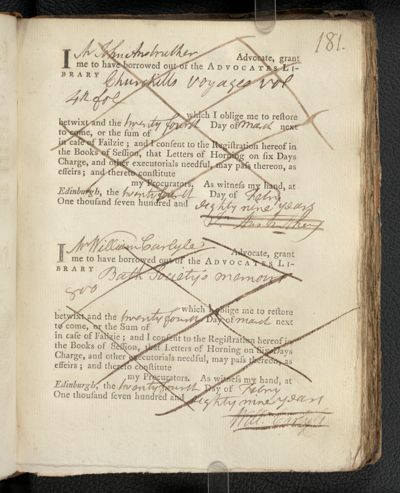 181.
I Mr John Anstruther Advocate, grant
me to have borrowed out of the ADVOCATES LI-
BRARY Churchills Voyages vol
4th fol
which I oblige me to restore
betwixt and the twenty fourth Day of March next
to come, or the sum of
in case of Failzie ; and I consent to the Registration hereof in
the Books of Session, that Letters of Horning on six Days
Charge, and other executorials needful, may pass thereon, as
effeirs ; and thereto constitute
my Procurators. As witness my hand, at
Edinburgh, the twenty fourth Day of Febry
One thousand seven hundred and eighty nine years
I Mr William Carlyle Advocate, grant
me to have borrowed out of the ADVOCATES LI-
BRARY Bath Society's memoirs
8vo
which I oblige me to restore
betwixt and the twenty fourth Day of March next
to come, or the Sum of
in case of Failzie ; and I consent to the Registration hereof in
the Books of Session, that Letters of Horning on six Days
Charge, and other executorials needful, may pass thereon, as
effeirs ; and thereto constitute
my Procurators. As witness my hand, at
Edinburgh, the twenty fourth Day of Febry
One thousand seven hundred and eighty nine years
Will: Carlyle